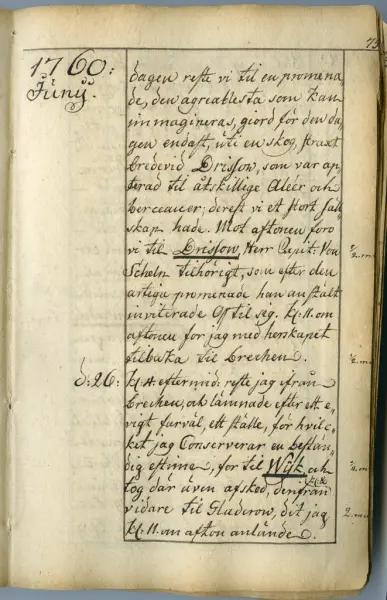 73
1760:
Juny.
dagen reste vi til en promena-
de, den agreablesta som kan
immagineras, giord för den da-
gen endast, uti en skog, straxt
bredevid Drissow, som var ap-
terad til åtskillige Aléer och
berceauer; derest vi et stort säll-
skap hade. Mot aftonen foro
vi til Drissow, Herr Capit: Von
Scheln tilhörigt, som efter den
artiga promenade han anstält
inviterade Oss til seg. kl: 11. om
aftonen for jag med herskapet
tilbaka til brechen.
d: 26: kl: 4. eftermid: reste jag ifrån
Brechen, och lämnade efter ett e-
vigt farväl, ett ställe, för hvilc-
ket jag Conserverar en bestän-
dig estime, for til Wiik och
tog där även afsked, denifrån
vidare til Gladerow, dit jag
kl: 11. om afton anlände.